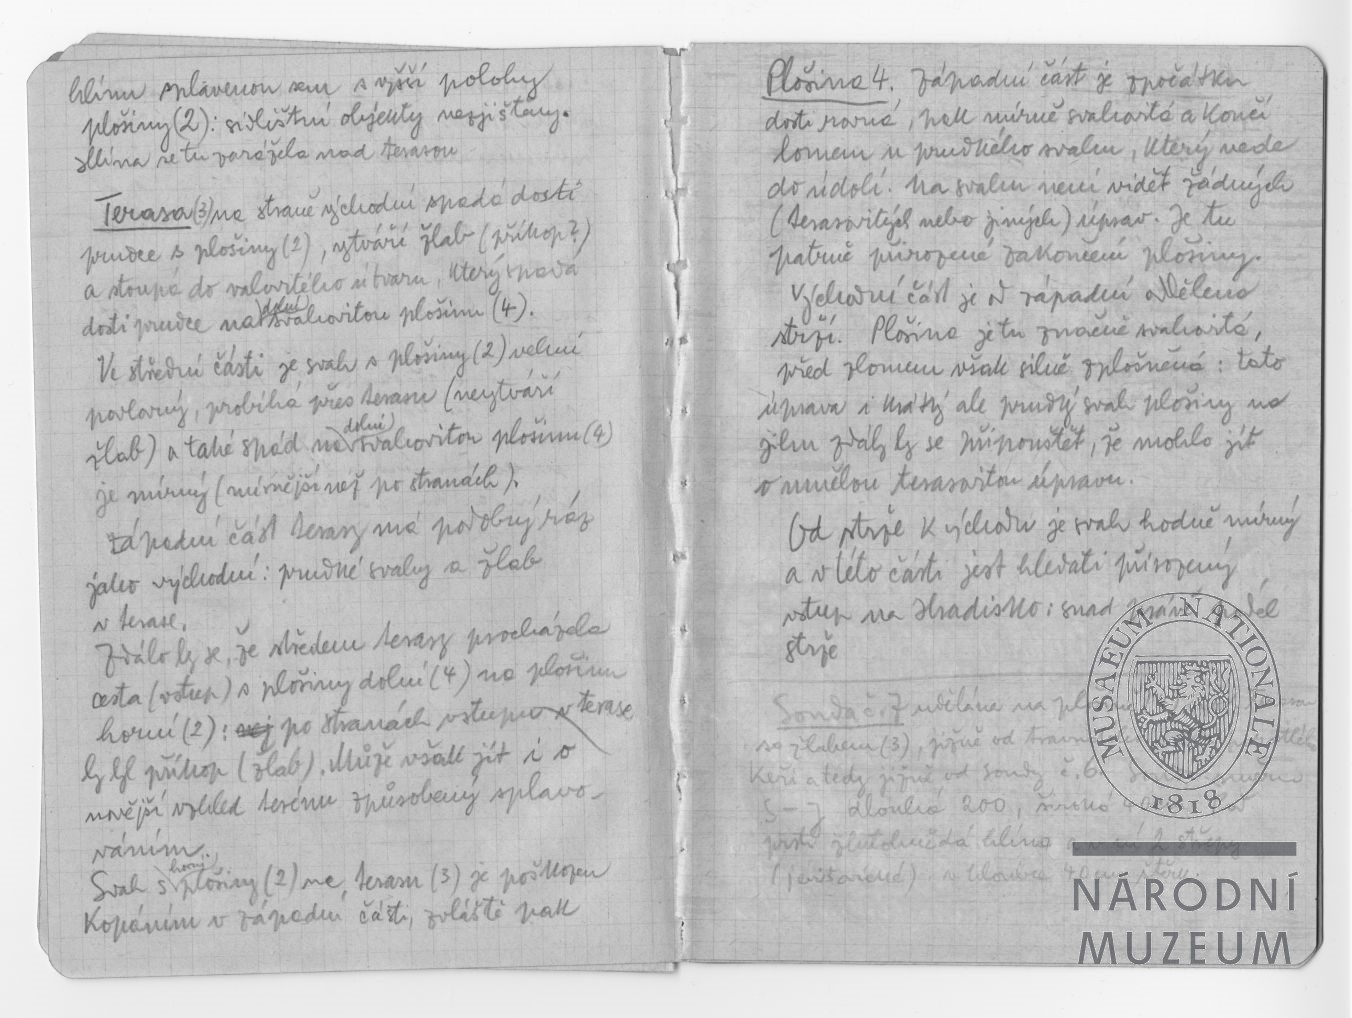 hlínu splavenou sem s vyšší polohy
plošiny (2): sídlištní objekty nezjištěny.
Hlína se tu zarážela nad terasou
Terasa (3) na straně východní spadá dosti
prudce s plošiny (2), vytváří žlab (příkop?)
a stoupá do valovitého útvaru, který spadá
dosti prudce na dolní svahovitou plošinu (4).
Ve střední části je svah s plošiny (2) velmi
povlovný, probíhá přes terasu (nevytváří
žlab) a také spád na dolní svahovitou plošinu (4)
je mírný (mírnější než po stranách).
Západní část terasy má podobný ráz
jako východní: prudké svahy a žlab
v terase.
Zdálo by se, že středem terasy procházela
cesta (vstup) s plošiny dolní (4) na plošinu
horní (2): po stranách vstupu v terase
by byl příkop (žlab). Může však jít i o
novější vzhled terénu způsobený splavo-
váním.
Svah s horní plošiny (2) na terasu (3) je poškozen
kopáním v západní části, zvláště pak
Plošina 4. Západní část je zpočátku
dosti rovná, pak mírně svahovitá a končí
lomem u prudkého svahu, který vede
do údolí. Na svahu není vidět žádných
(terasovitých nebo jiných) úprav. Je tu
patrně přirozené zakončení plošiny.
Východní část je od západní oddělena
strží. Plošina je tu značně svahovitá,
před zlomem však silně zploštěná: tato
úprava i krátký ale prudký svah plošiny na
jihu zdály by se připouštět, že mohlo jít
o umělou terasovitou úpravu.
Od strže k východu je svah hodně mírný
a v této části jest hledati přirozený
vstup na Hradisko: snad podél
strže
Sonda č. 7 udělána na
se žlabem (3), jižně od
keři a tedy jižně od sondy č. 6.
S–J dlouhá 200, široká
prsti žlutohnědá hlína a v ní 2 střepy
v hloubce 40 cm
MUSAEUM NATIONALE
1818
NÁRODNÍ
MUZEUM